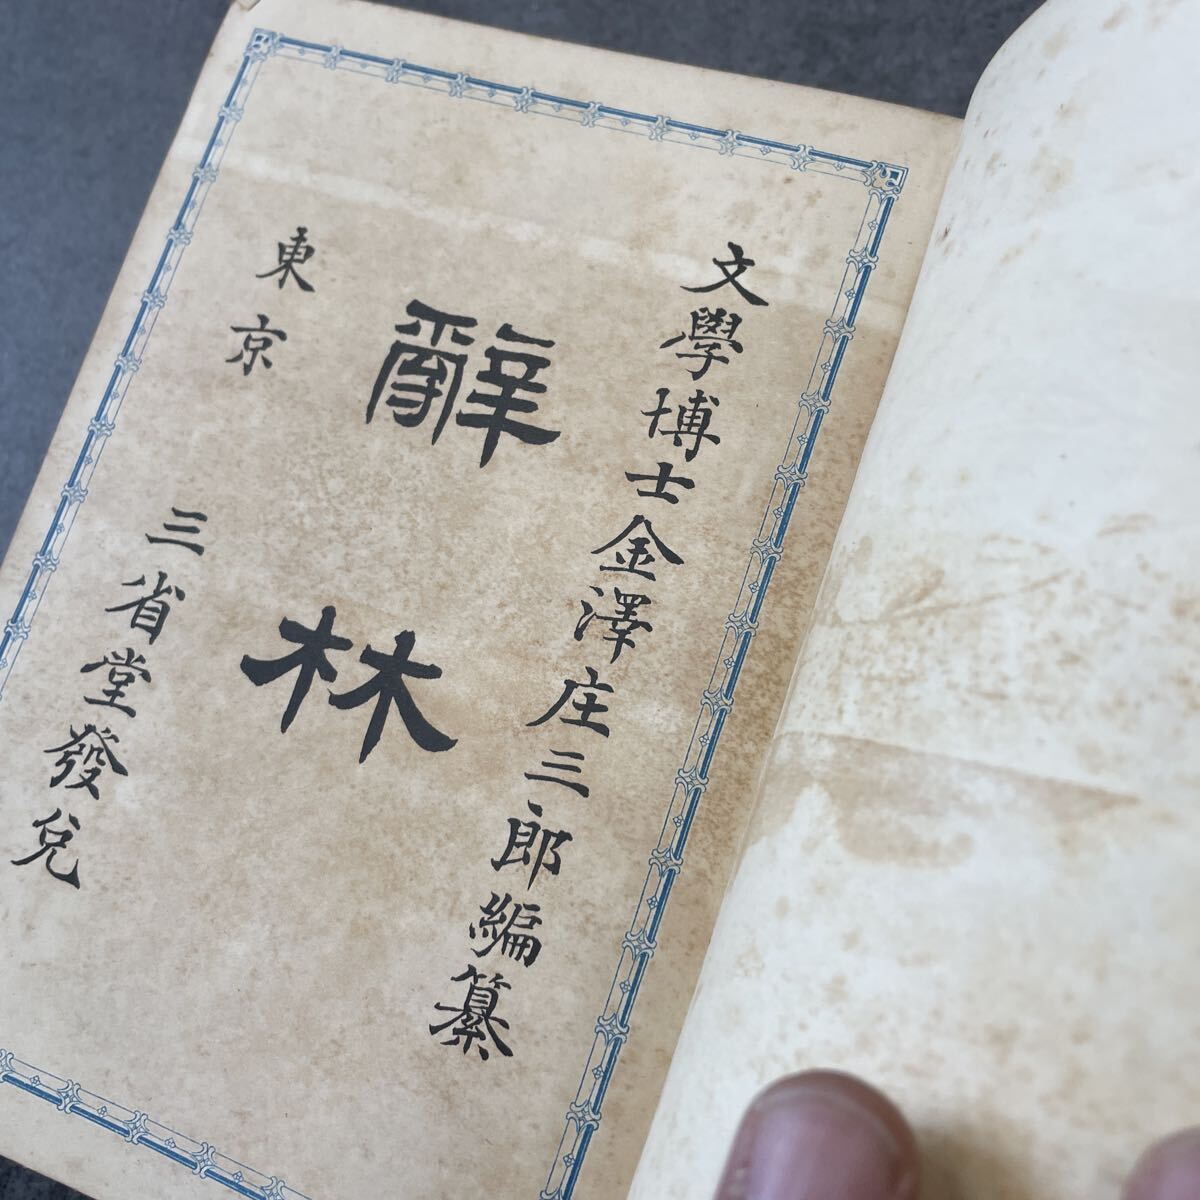 文學博士金澤庄三郎編纂
辭林
東京
三省堂發兌